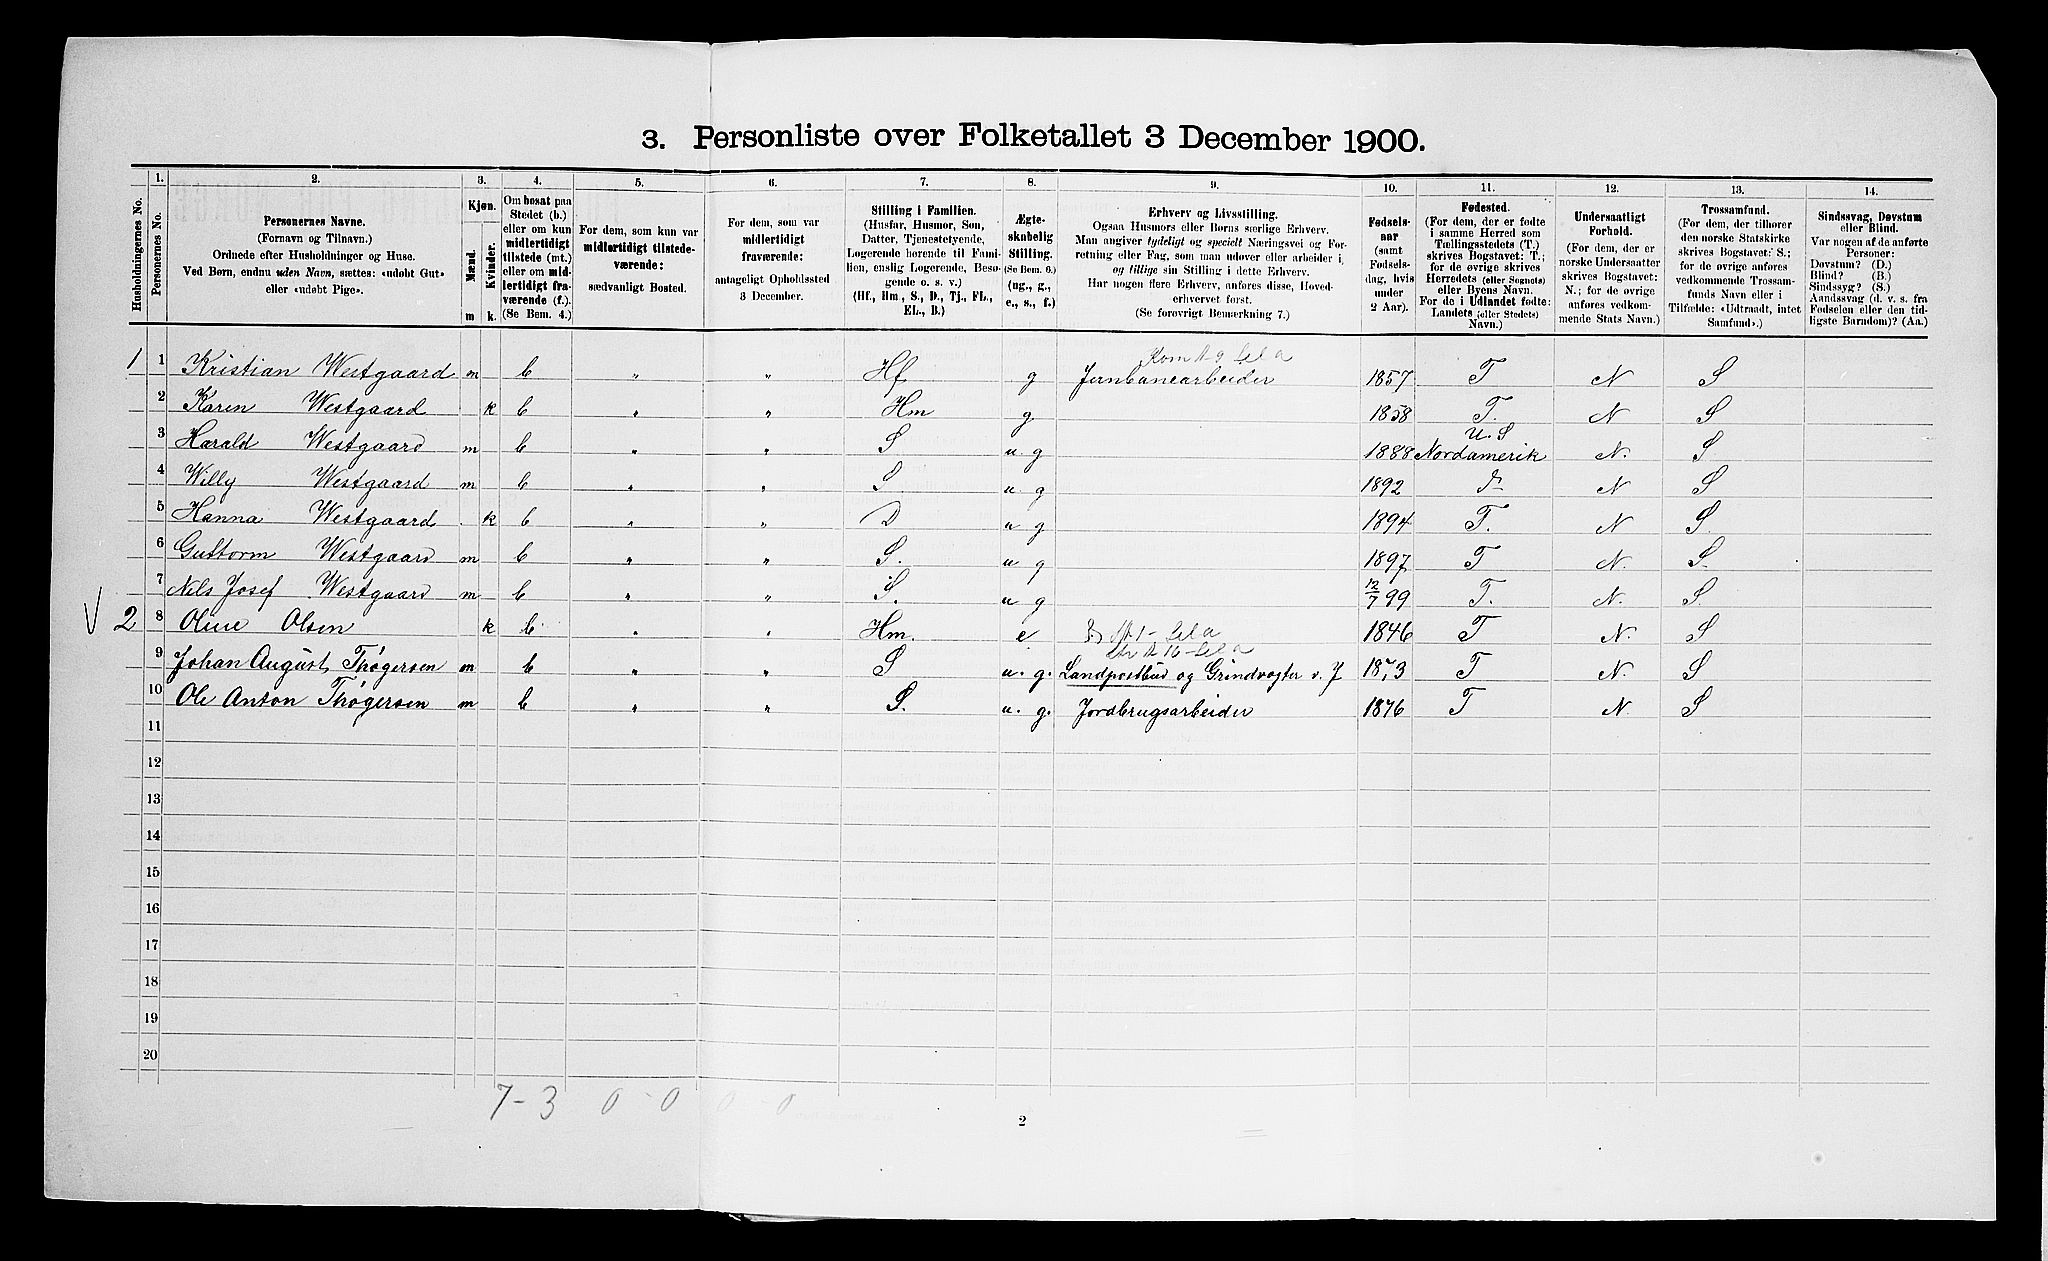 3. Personliste over Folketallet 3 December 1900.
Husholdningernes No.
1.
Personernes No.
2.
Personernes Navne.
(Fornavn og Tilnavn.)
Ordnede efter Husholdninger og Huse.
Ved Børn, endnu uden Navn, sættes: «udøbt Gut»
eller «udøbt Pige».
3.
Kjøn.
Mænd.
Kvinder.
m
k.
4.
Om bosat paa
Stedet (b.)
eller om kun
midlertidigt
tilstede (mt.)
eller om mid-
lertidigt fra-
værende (f.).
(Se Bem. 4.)
5.
For dem, som kun var
midlertidigt tilstede-
værende:
sædvanligt Bosted.
6.
For dem, som var
midlertidigt
fraværende:
antageligt Opholdssted
3 December.
7.
Stilling i Familien.
(Husfar, Husmor, Søn,
Datter, Tjenestetyende,
Logerende hørende til Fami-
lien, enslig Logerende, Besø-
gende o. s. v.)
(Hf., Hm., S., D., Tj., FL.,
EL., B.)
8.
Ægte-
skabelig
Stilling.
(Se Bem. 6.)
(ug., g.,
e., s., f.)
9.
Erhverv og Livsstilling.
Ogsaa Husmors eller Børns særlige Erhverv.
Man angiver tydeligt og specielt Næringsvei og For-
retning eller Fag, som man udøver eller arbeider i,
og tillige sin Stilling i dette Erhverv.
Har nogen flere Erhverv, anføres disse, Hoved-
erhvervet først.
(Se forøvrigt Bemærkning 7.)
10.
Fødsels-
aar
(samt
Fødsels-
dag, hvis
under
2 Aar).
11.
Fødested.
(For dem, der er fødte
i samme Herred som
Tællingsstedets (T.)
skrives Bogstavet: T.;
for de øvrige skrives
Herredets (eller Sognets)
eller Byens Navn.
For de i Udlandet fødte:
Landets (eller Stedets)
Navn.)
12.
Undersaatligt
Forhold.
(For dem, der er
norske Undersaatter
skrives Bogstavet:
N.; for de øvrige
anføres vedkom-
mende Stats Navn.)
13.
Trossamfund.
(For dem, der tilhører
den norske Statskirke
skrives Bogstavet: S.;
for de øvrige anføres
vedkommende Trossam-
funds Navn eller i
Tilfælde: «Udtraadt, intet
Samfund».)
14.
Sindssvag, Døvstum
eller Blind.
Var nogen af de anførte
Personer:
Døvstum? (D.)
Blind? (B.)
Sindssyg? (S.)
Aandssvag (d. v. s. fra
Fødselen eller den tid-
ligste Barndom)? (Aa.)
1 1 Kristian Westgaard m b " " Hf g Jernbanearbeider 1857 T N S
2 Karen Westgaard k b " " Hm g. 1858 T. N S
U. S
3 Harald Westgaard m b " " S u g 1888 Nordamerik N. S
4 Willy Westgaard m b " " S u g 1892 T N S
5 Hanna Westgaard k b " " D u g 1894 T. N S.
6 Guttorm Westgaard m b " " S. u g 1897 T N. S.
7 Nils Josef Westgaard m b " " S. u g 12/7 99 T. N. S.
V 2 8 Oline Olsen k b " " Hm. e 1846 T N. S
9 Johan August Thøgersen m b " " S u. g. Landpostbud og Grindvogter v. J 1873 T N. S
10 Ole Anton Thøgersen m b " " S. u. g. Jordbrugsarbeider 1876 T N. S
11
12
13
14
15
16
17
18
19
20
7-3 0-0 0-0
2